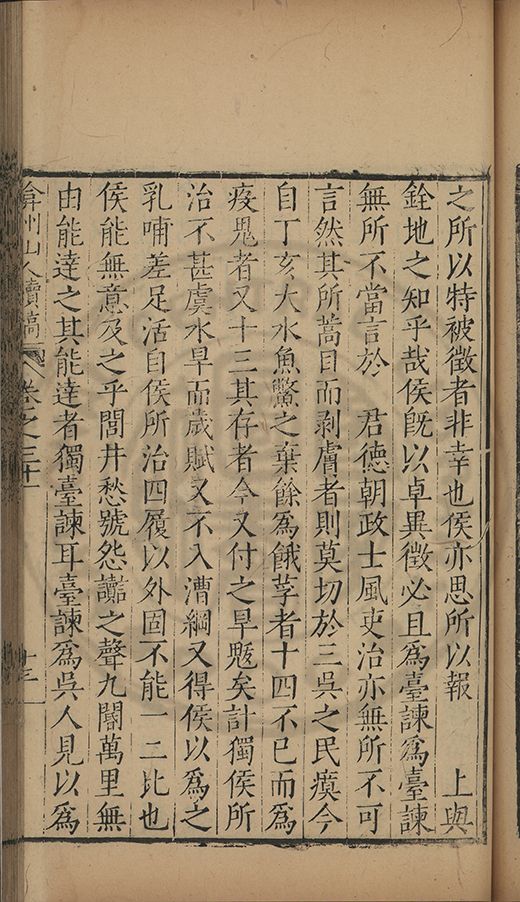 之所以特被徵者非幸也侯亦思所以報　上與
銓地之知乎哉侯旣以卓異徵必且爲臺諫爲臺諫
無所不當言於　君德朝政士風吏治亦無所不可
言然其所蒿目而剥膚者則莫切於三吳之民瘼今
自丁亥大水魚鱉之棄餘爲餓莩者十四不已而爲
疫鬼者又十三其存者今又付之旱魃矣計獨侯所
治不甚虞水旱而歲賦又不入漕綱又得侯以爲之
乳哺差足活自侯所治四履以外固不能一二比也
侯能無意及之乎閭井愁號怨讟之聲九閽萬里無
由能達之其能達者獨臺諫耳臺諫爲吳人見以爲
弇州山人續稿 卷之三十 十三